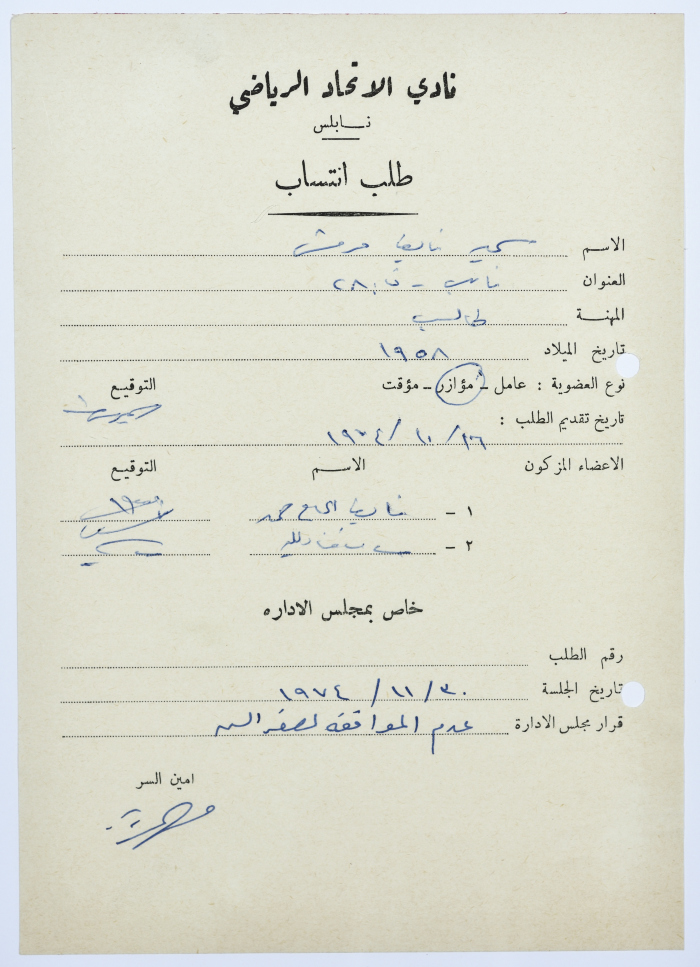 نادي الاتحاد الرياضي
نابلس
طلب انتساب
الاسم سمير نايف
العنوان نابلس -
المهنة طالب
تاريخ الميلاد ١٩٥٨
نوع العضوية : عامل - مؤازر - مؤقت التوقيع
تاريخ تقديم الطلب :
٢٦/ ١٠ / ١٩٧٤
الاعضاء المزكون الاسم التوقيع
١ -
٢ -
خاص بمجلس الاداره
رقم الطلب
تاريخ الجلسة ٣٠ / ١١ / ١٩٧٤
قرار مجلس الادارة عدم الموافقه لصغر السن
امين السر